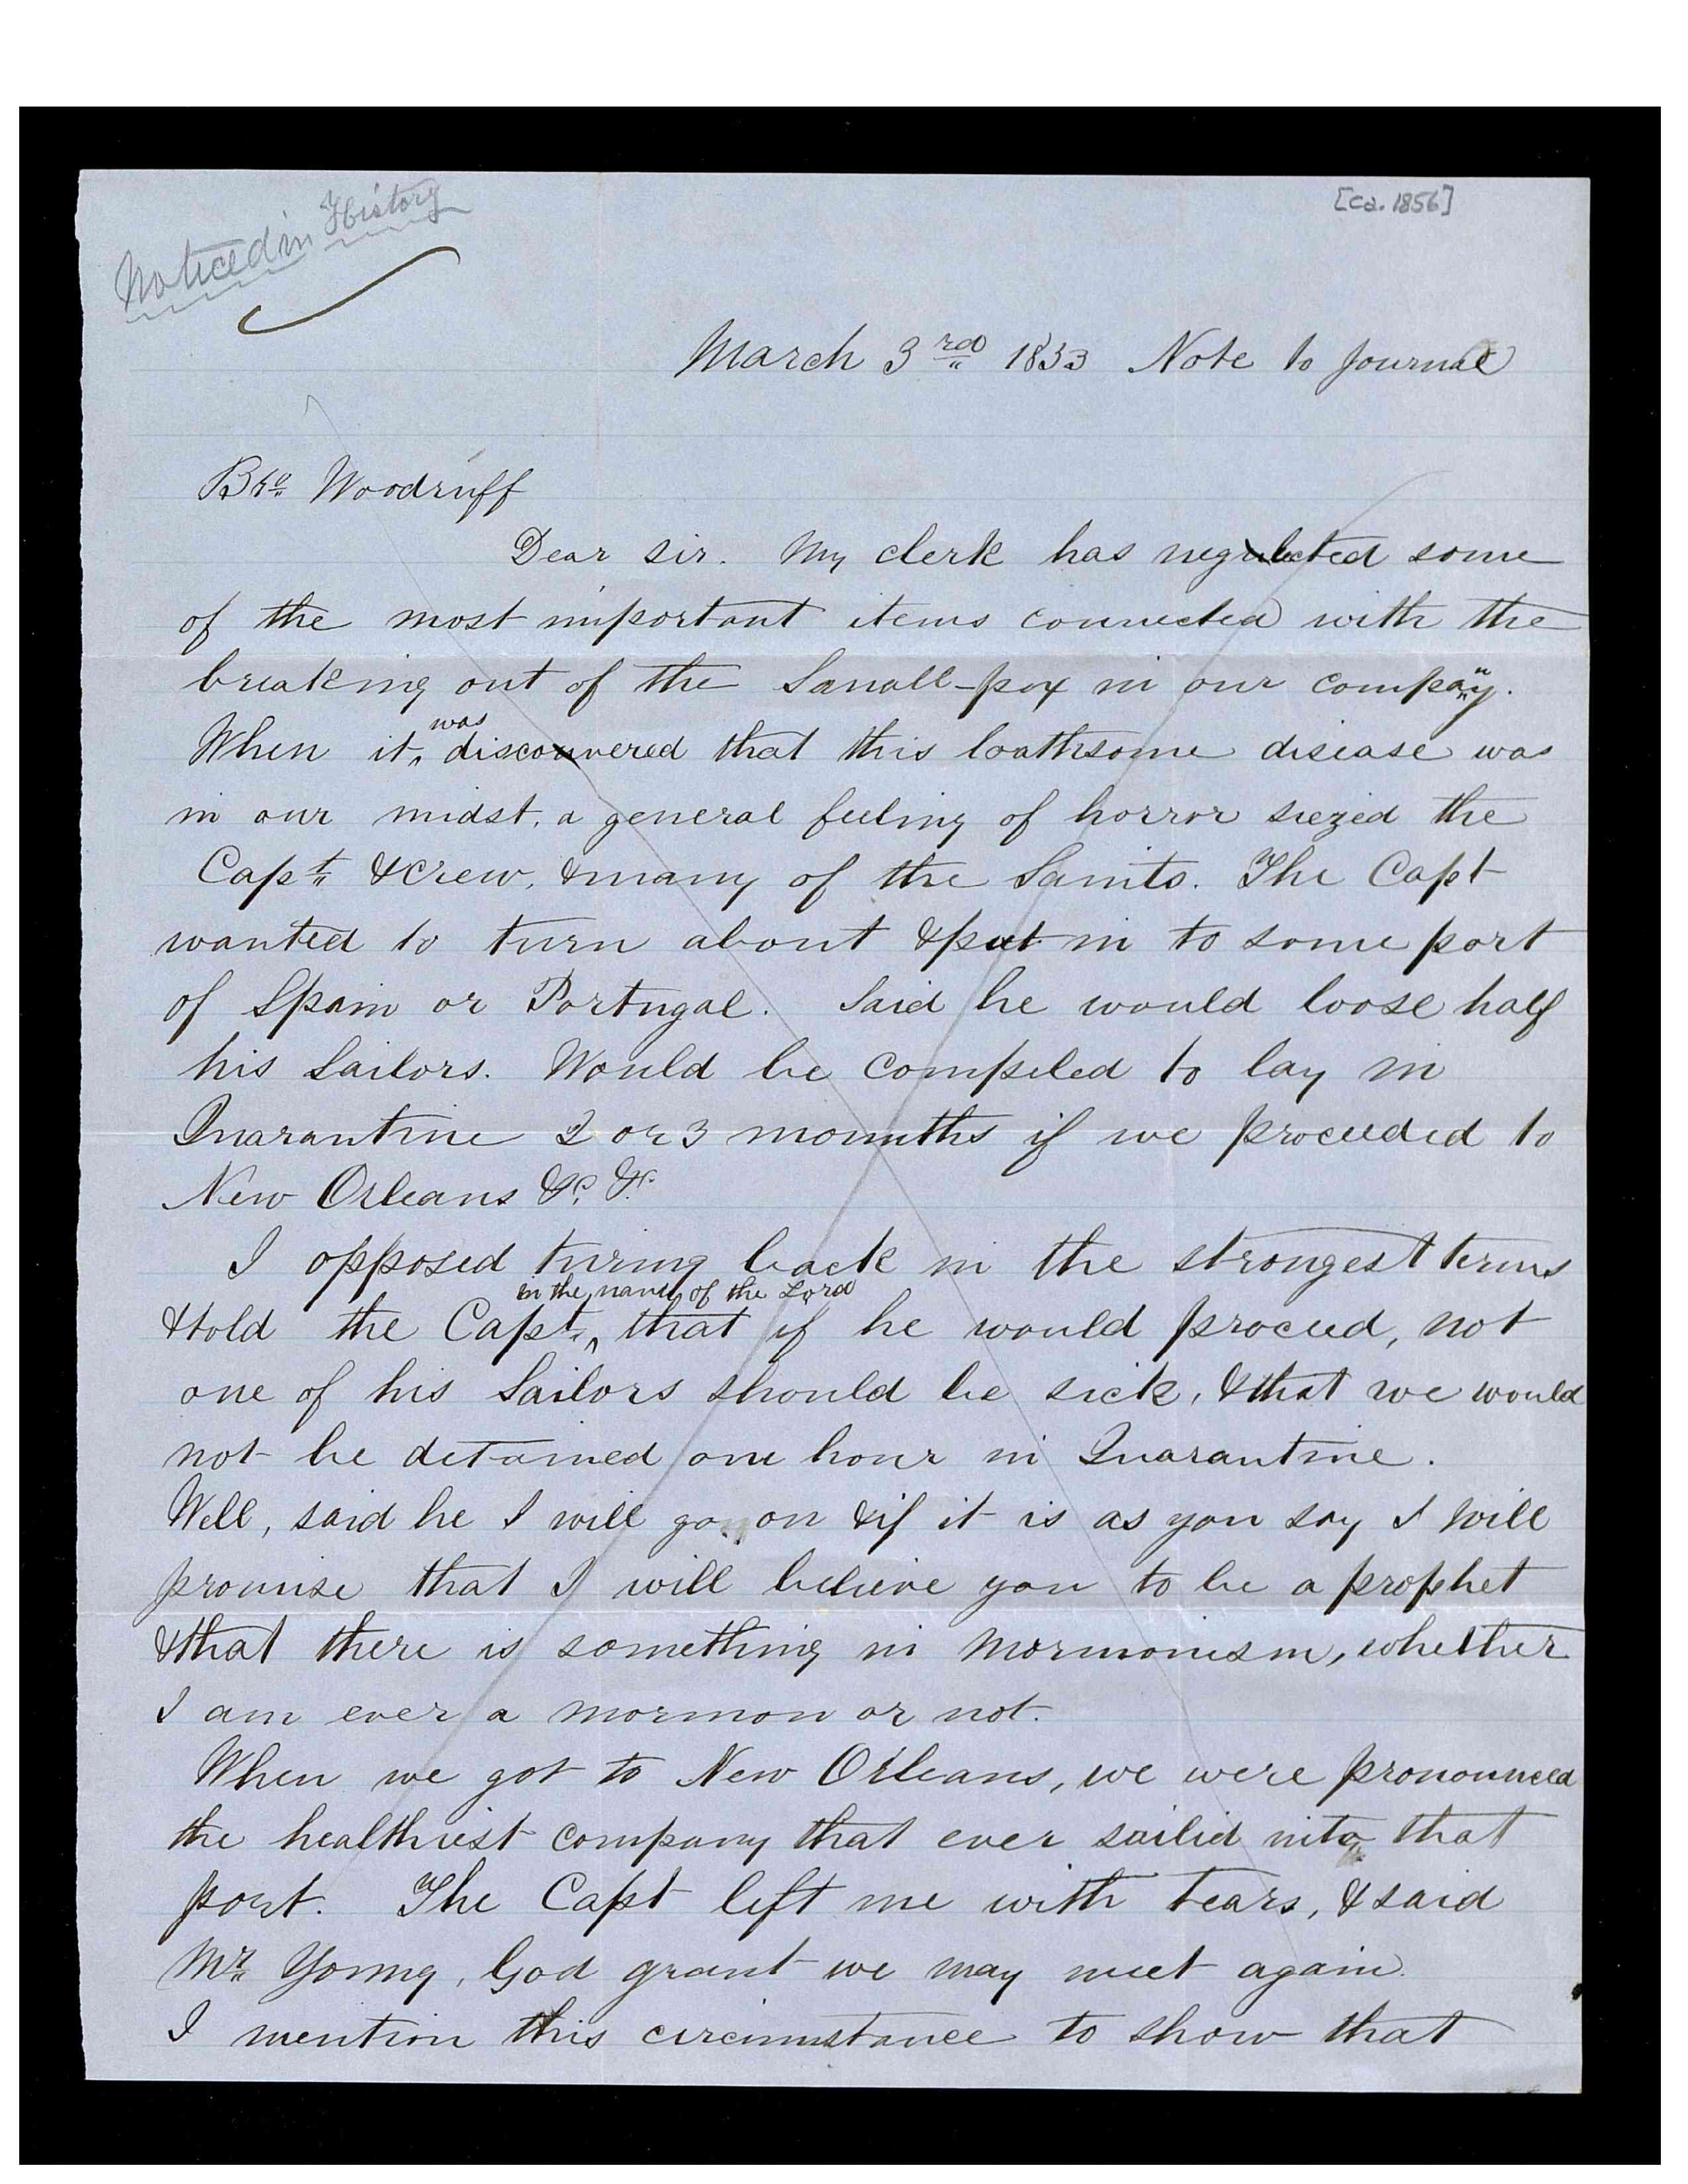 Noticed in History
[ca. 1856]
March 3rd 1853 Note to Journal
Bro Woodruff
Dear sir. My clerk has neglected some
of the most important items connected with the
breaking out of the Small-pox in our company.
When it was discovered that this loathsome disease was
in our midst, a general feeling of horror siezed the
Capt & crew, & many of the Saints. The Capt
wanted to turn about & put in to some port
of Spain or Portugal. Said he would loose half
his Sailors. Would be compeled to lay in
Quarantine 2 or 3 months if we proceeded to
New Orleans &c. &c.
I opposed turing back in the strongest terms
& told the Capt, in the name of the Lord that if he would proceed, not
one of his Sailors should be sick, & that we would
not be detained one hour in Quarantine.
Well, said he I will go on & if it is as you say I will
promise that I will believe you to be a prophet
& that there is something in Mormonism, whether
I am ever a mormon or not.
When we got to New Orleans, we were pronounced
the healthiest company that ever sailed into that
port. The Capt left me with tears, & said
Mr Young, God grant we may meet again.
I mention this circumstance to show that